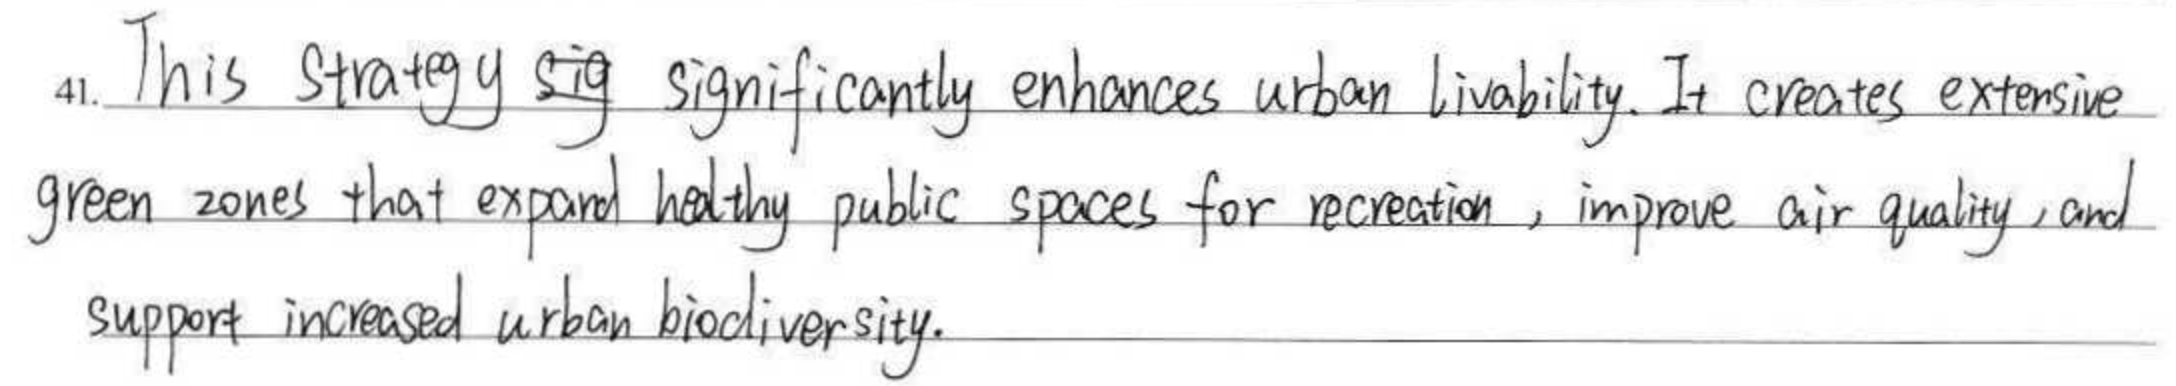 41. This strategy sig significantly enhances urban livability. It creates extensive
green zones that expand healthy public spaces for recreation, improve air quality, and
support increased urban biodiversity.